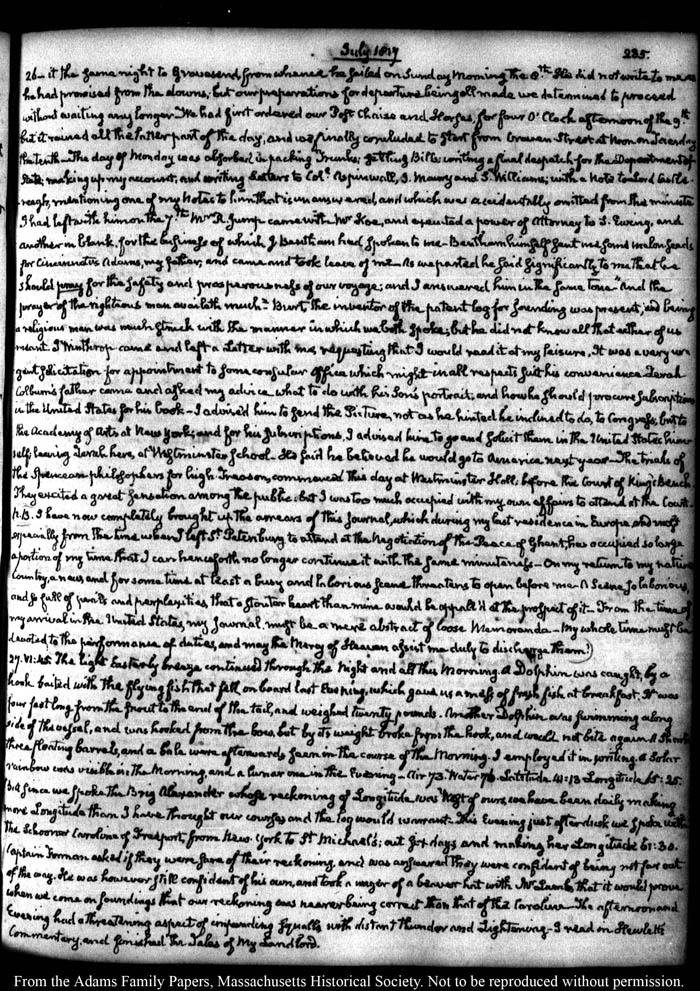 July 1817
235.
26— it the same night to Gravesend from whence he sailed on Sunday Morning the 8th. He did not write to me as
he had promised from the downs, but our preparations for departure being all made we determined to proceed
without waiting any longer. We had first ordered our Post Chaise and Horses, for four O'Clock afternoon of the 9th
but it rained all the latter part of the day, and we finally concluded to start from Craven Street at Noon on Tuesday
the tenth—The day of Monday was absorbed in packing Trunks; settling Bills; writing a final despatch for the Department of
State; making up my account, and writing Letters to Coll. Aspinwall, J. Maury and S. Williams; with a Note to Lord Castle-
reagh, mentioning one of my Notes to him that is unanswered, and which was accidentally omitted from the minute
I had left with him on the 7th. Mr R. Jump came with Mr Hoe, and executed a power of Attorney to S. Ewing, and
another in blank, for the business of which J. Bentham had spoken to me—Bentham himself sent me some melon seeds
for Cincinnatus Adams, my father; and came and took leave of me—As we parted he said significantly to me that he
should pray for the safety and prosperousness of our voyage; and I answered him in the same tone "And the
prayer of the righteous man availeth much"— Burt, the inventor of the patent log for sounding was present, and being
a religious man was much struck with the manner in which we both spoke; but he did not know all that either of us
meant. J. Winthrop came and left a Letter with me, requesting that I would read it at my leisure. It was a very ur-
gent solicitation for appointment to some consular office which might in all respects suit his convenience. Zerah
Colburn's father came and asked my advice what to do with his Son's portrait, and how he should procure subscriptions
in the United States for his book—I advised him to send the Picture, not as he hinted he inclined to do, to Congress, but to
the Academy of Arts at New York; and for his subscriptions, I advised him to go and solicit them in the United States him-
self, leaving Zerah here, at Westminster School—He said he believed he would go to America next year—The trials of
the Spencean philosophers for high Treason, commenced this day at Westminster Hall, before the Court of King's Bench
They excited a great sensation among the public; but I was too much occupied with my own affairs to attend at the Court.
N.B. I have now completely brought up the arrears of this Journal, which during my last residence in Europe and most
especially from the time when I left St Petersburg to attend at the Negotiation of the Peace of Ghent, has occupied so large
a portion of my time that I can henceforth no longer continue it with the same minuteness—On my return to my native
Country, a new, and for some time at least a busy and laborious scene threatens to open before me—A Scene so laborious
and so full of perils and perplexities, that a stouter heart than mine would be appall'd at the prospect of it—From the time of
my arrival in the United States, my Journal must be a mere abstract of loose Memoranda—My whole time must be
devoted to the performance of duties, and may the Mercy of Heaven assist me duly to discharge them!)
27. VI:45. The light Easterly breeze continued through the Night and all this Morning. A Dolphin was caught, by a
hook baited with the flying fish that fell on board last Evening, which gave us a mess of fresh fish at breakfast. It was
four feet long from the snout to the end of the tail, and weighed twenty pounds. Another Dolphin was swimming along
side of the vessel, and was hooked from the bow, but by its weight broke from the hook, and would not bite again. A Shark
three floating barrels, and a bale were afterwards seen in the course of the Morning. I employed it in writing. A Solar
rainbow was visible in the Morning, and a lunar one in the Evening—Air 73. Water 76. Latitude 41:13 Longitude 65:25.
Ever since we spoke the Brig Alexander whose reckoning of Longitude was West of ours we have been daily making
more Longitude than I have thought our courses and the Log would warrant. This Evening just after dusk we spoke with
the Schooner Caroline of Freeport, from New-York to St Michael's; out days and making her Longitude 61:30.
Captain Forman asked if they were sure of their reckoning, and was answered they were confident of being not far out
of the way. He was however still confident of his own, and took a wager of a beaver hat with Mr Lamb, that it would prove
when we come on soundings that our reckoning was nearer being correct than that of the Caroline. The afternoon and
Evening had a threatening aspect of impending Squalls, with distant thunder and Lightening—I read in Hewlett's
Commentary, and finished the Tales of My Landlord.
From the Adams Family Papers, Massachusetts Historical Society. Not to be reproduced without permission.